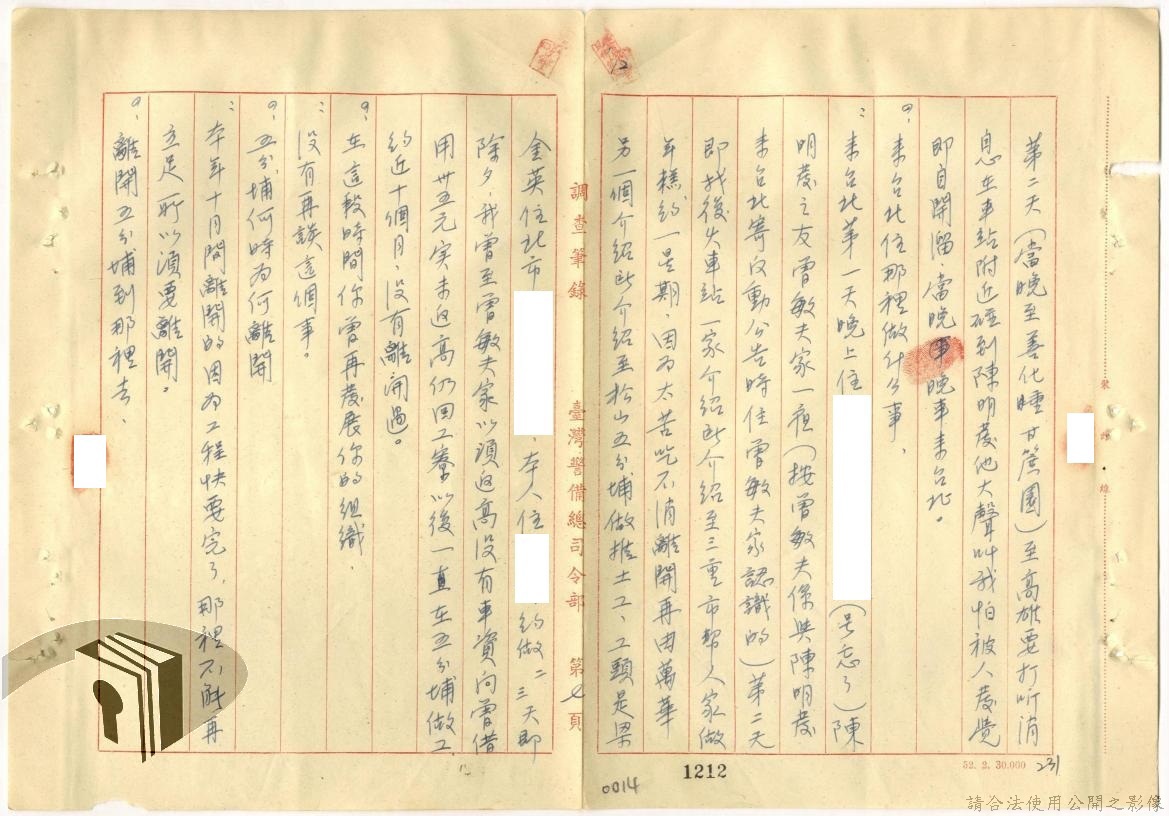 第二天(當晚至善化睡甘蔗園)至高雄要打听消
息在車站附近碰到陳明發他大聲叫我怕被人發覺
即自開溜,當晚車晚車來台北。
9,來台北住那裡做什么事,
:來台北第一天晚上住(号忘了)陳
明發之友曾敏夫家一夜(按曾敏夫係與陳明發
來台北寄反動公告時住曾敏夫家認識的)第二天
即找後火車站一家介紹所介紹至三重市幫人家做
年糕約一星期,因為太苦吃不消離開再由萬華
另一個介紹所介紹至松山五分埔做推土工、工頭是梁
1212
0014
52. 2. 30.000
231
12
調查筆錄 臺灣警備總司令部 第七頁
金英住北市、本人住約做二三天即
除夕,我曾至曾敏夫家以須返高沒有車資向曾借
用卅五元实未返高仍回工寮以後一直在五分埔做工
約近十個月,沒有離開過。
9,在這段時間你曾再發展你的組織,
:沒有再談這個事。
9,五分埔何時為何離開
:本年十月間離開的因為工程快要完了,那裡不能再
立足所以須要離開。
9,離開五分埔到那裡去、
請合法使用公開之影像